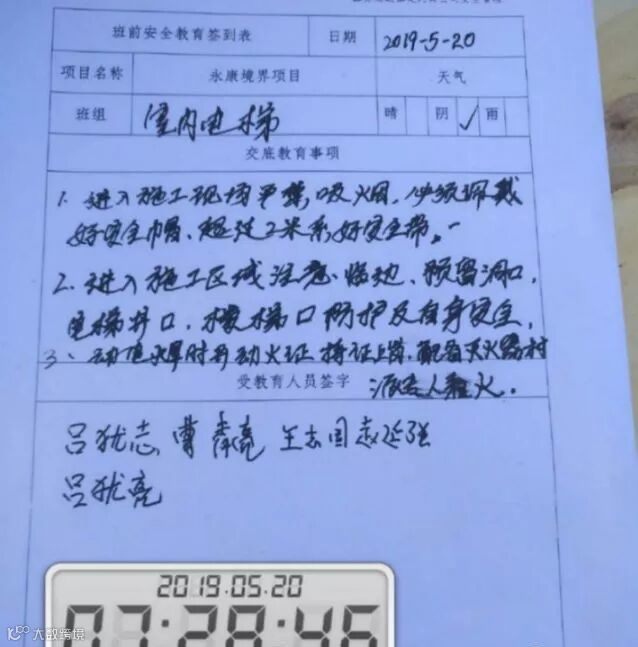 班前安全教育签到表 日期 2019-5-20
项目名称 永康境界项目 天气
班组 室内电梯 晴 阴 ✓ 雨
交底教育事项
1. 进入施工现场严禁吸烟，必须佩戴
好安全帽、超过2米系好安全带。
2. 进入施工区域注意临边、预留洞口，
电梯井口、楼梯口防护及自身安全，
3、动电焊时开动火证持证上岗，配备灭火器材
受教育人员签字 派专人看火．
吕犹志 曹春亮 王志国 赵延强
吕犹亮
2019.05.20
07:28:46
大数跨境